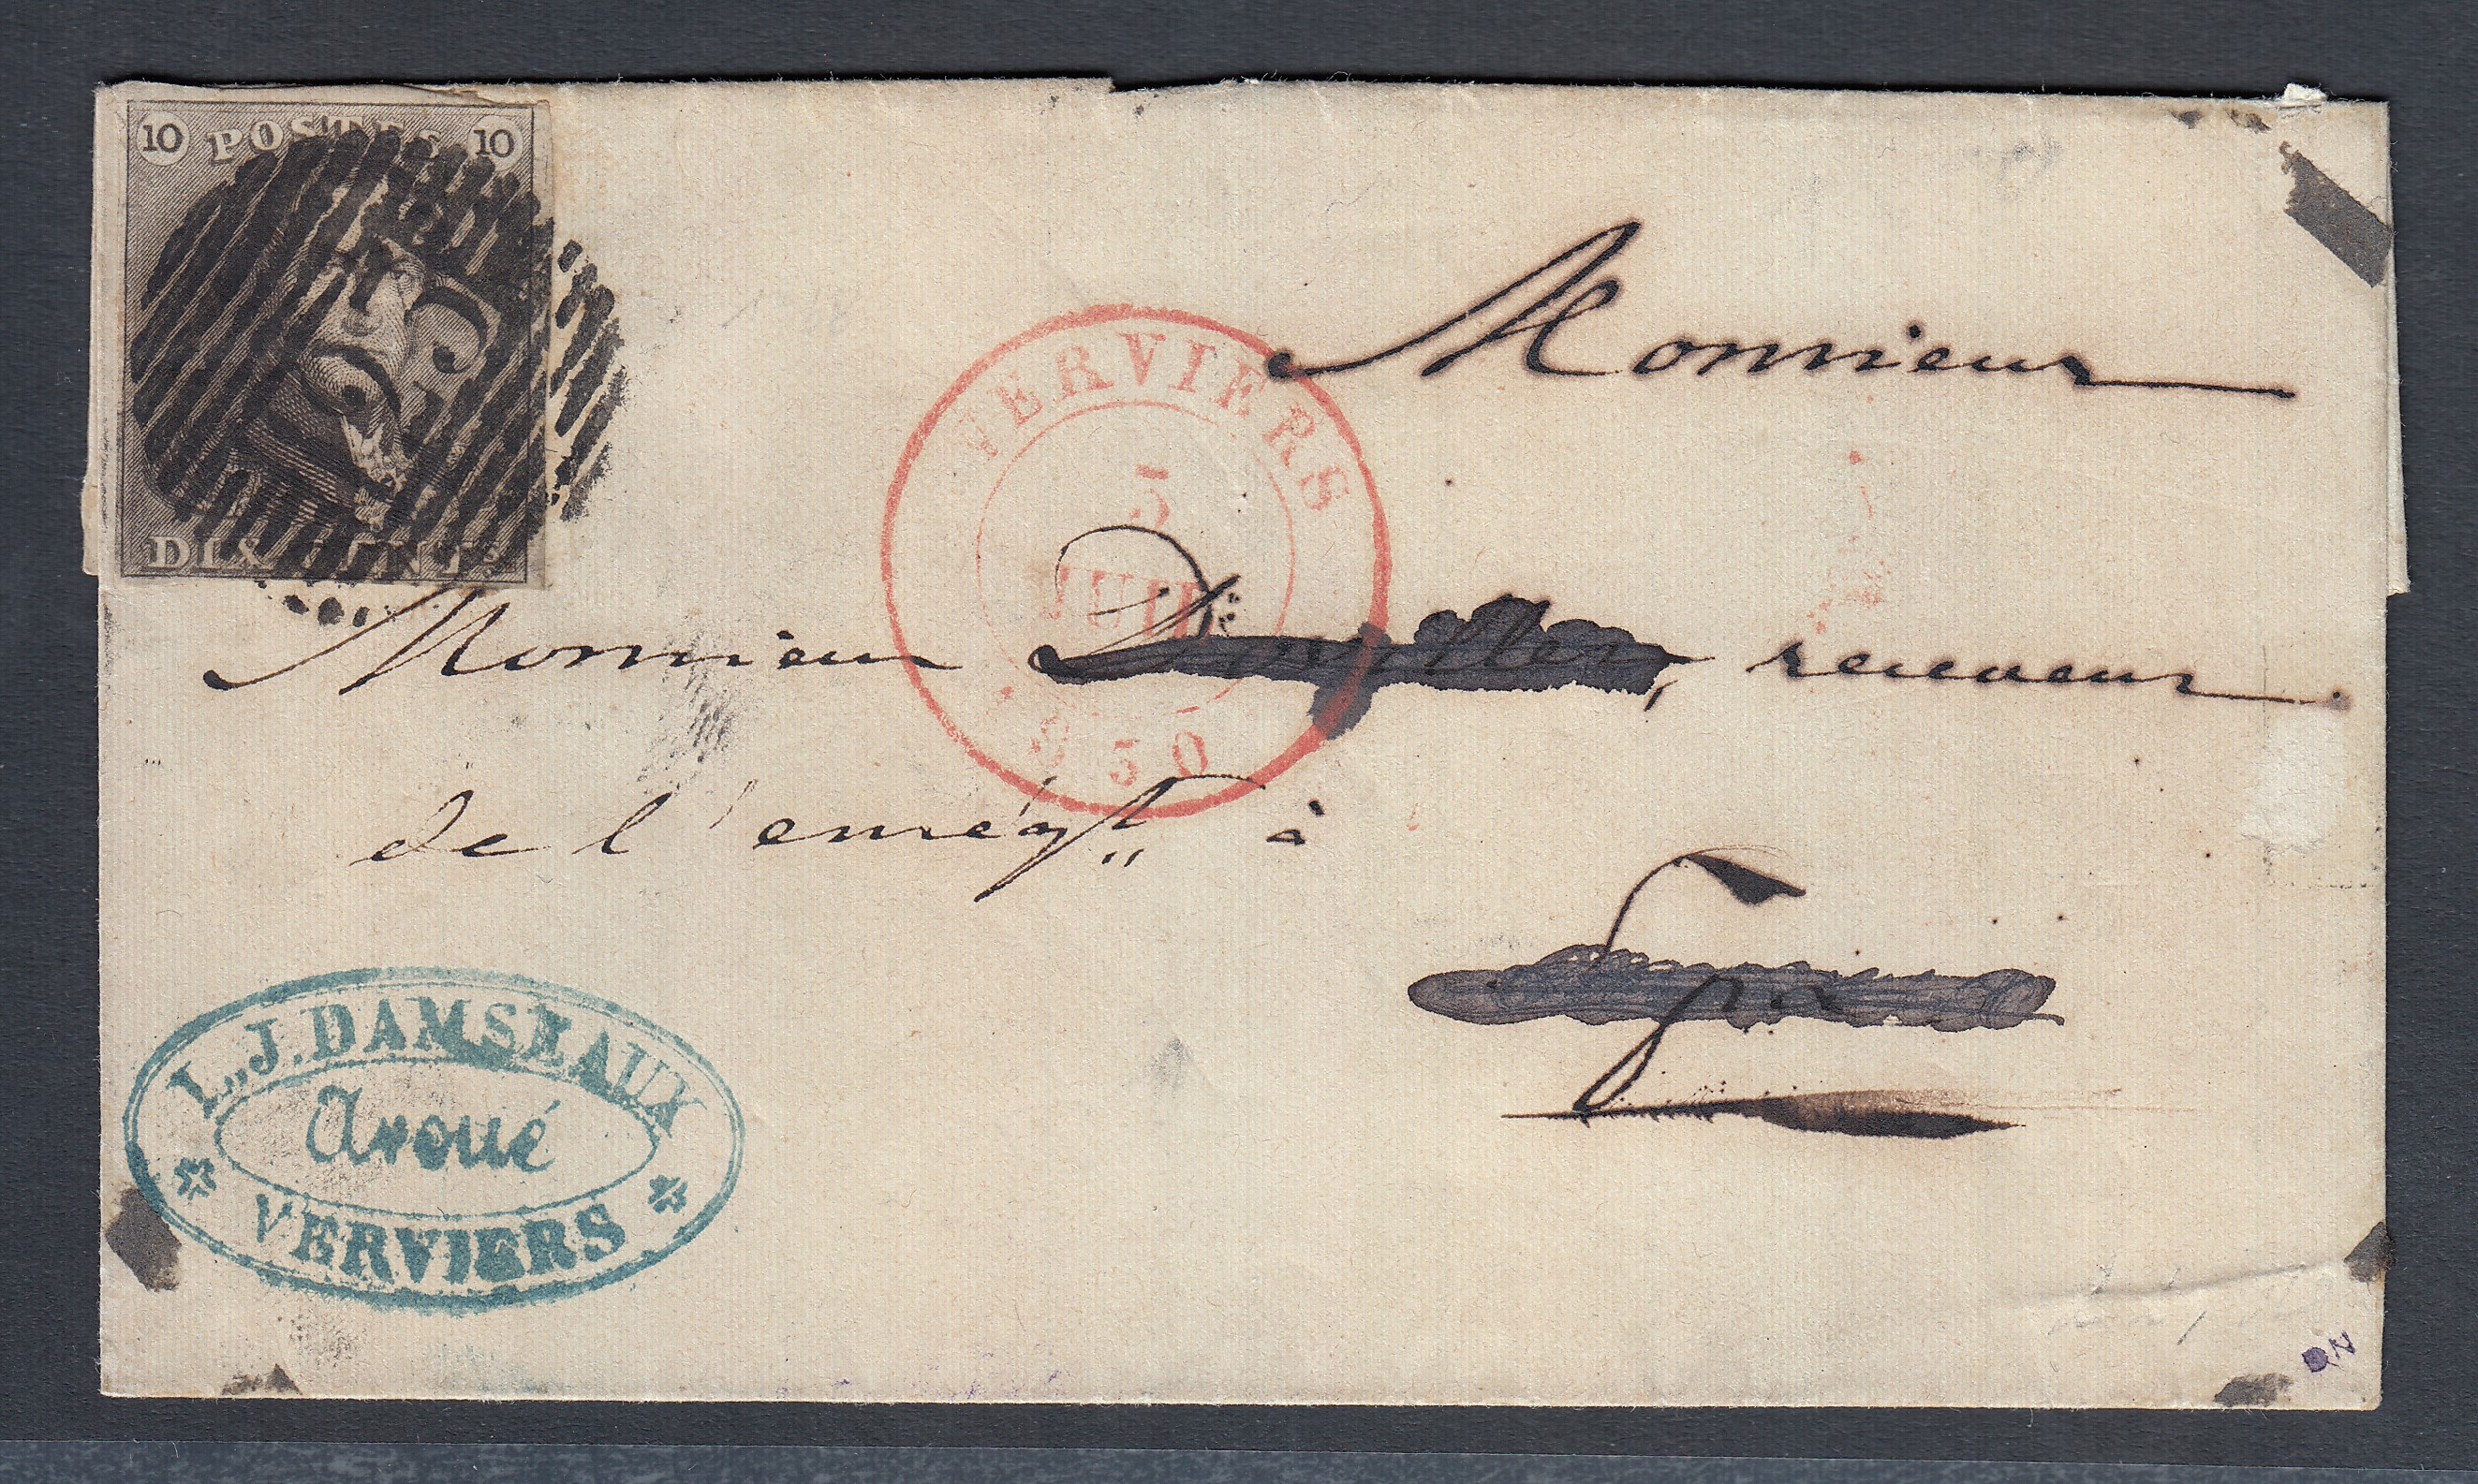 10 POSTES 10
DIX CENTS
VERVIERS
5
JUIL
1850
Monsieur
Monsieur receveur
de l'enrég.t à
Spa
L.J. DAMSEAUX
Avoué
VERVIERS